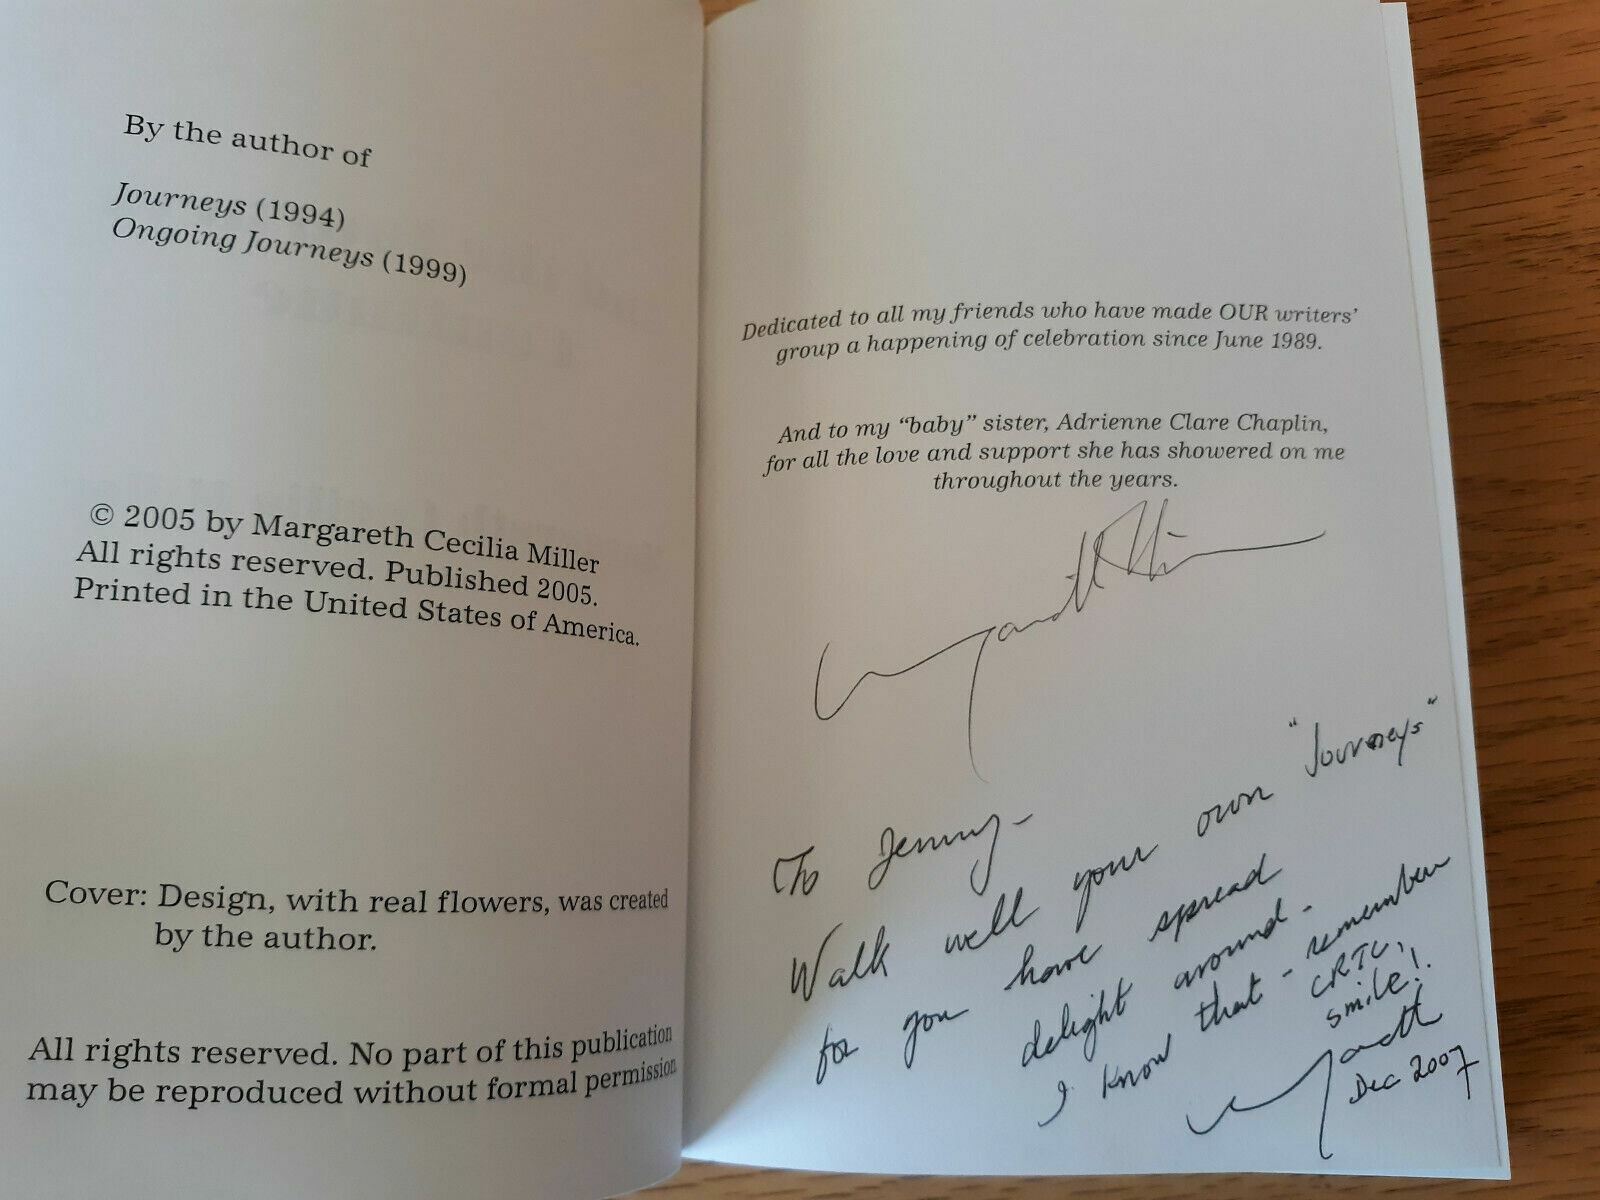 By the author of
Journeys (1994)
Ongoing Journeys (1999)
© 2005 by Margareth Cecilia Miller
All rights reserved. Published 2005.
Printed in the United States of America.
Cover: Design, with real flowers, was created
by the author.
All rights reserved. No part of this publication
may be reproduced without formal permission
Dedicated to all my friends who have made OUR writers'
group a happening of celebration since June 1989.
And to my “baby” sister, Adrienne Clare Chaplin,
for all the love and support she has showered on me
throughout the years.
To Jenny-
Walk well your own "Journeys"
for you have spread
delight around.
I know that - remember
CRTC,
smile!!
Dec 2007